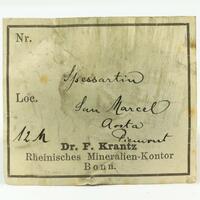 Nr.
Spessartin
Loc.
San Marcel
Aosta
Piemont
12 M
Dr. F. Krantz
Rheinisches Mineralien-Kontor
Bonn.